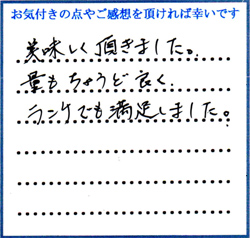 お気付きの点やご感想を頂ければ幸いです
美味しく頂きました。
量もちょうど良く、
ランチでも満足しました。